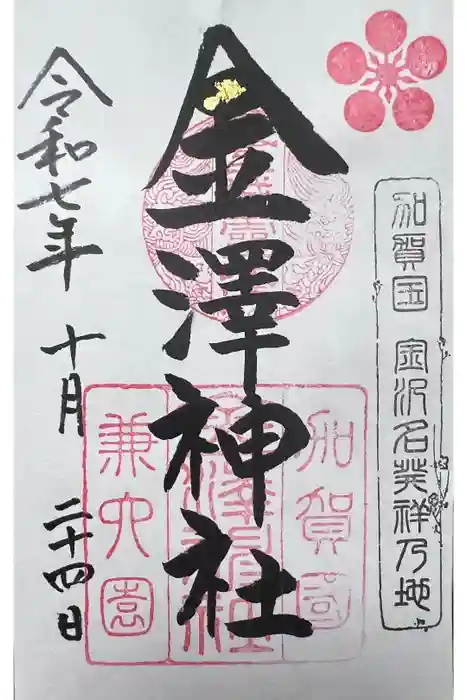 加賀国 金沢名発祥乃地
加賀國
金澤神社
兼六園
金澤神社
令和七年 十月 二十四日